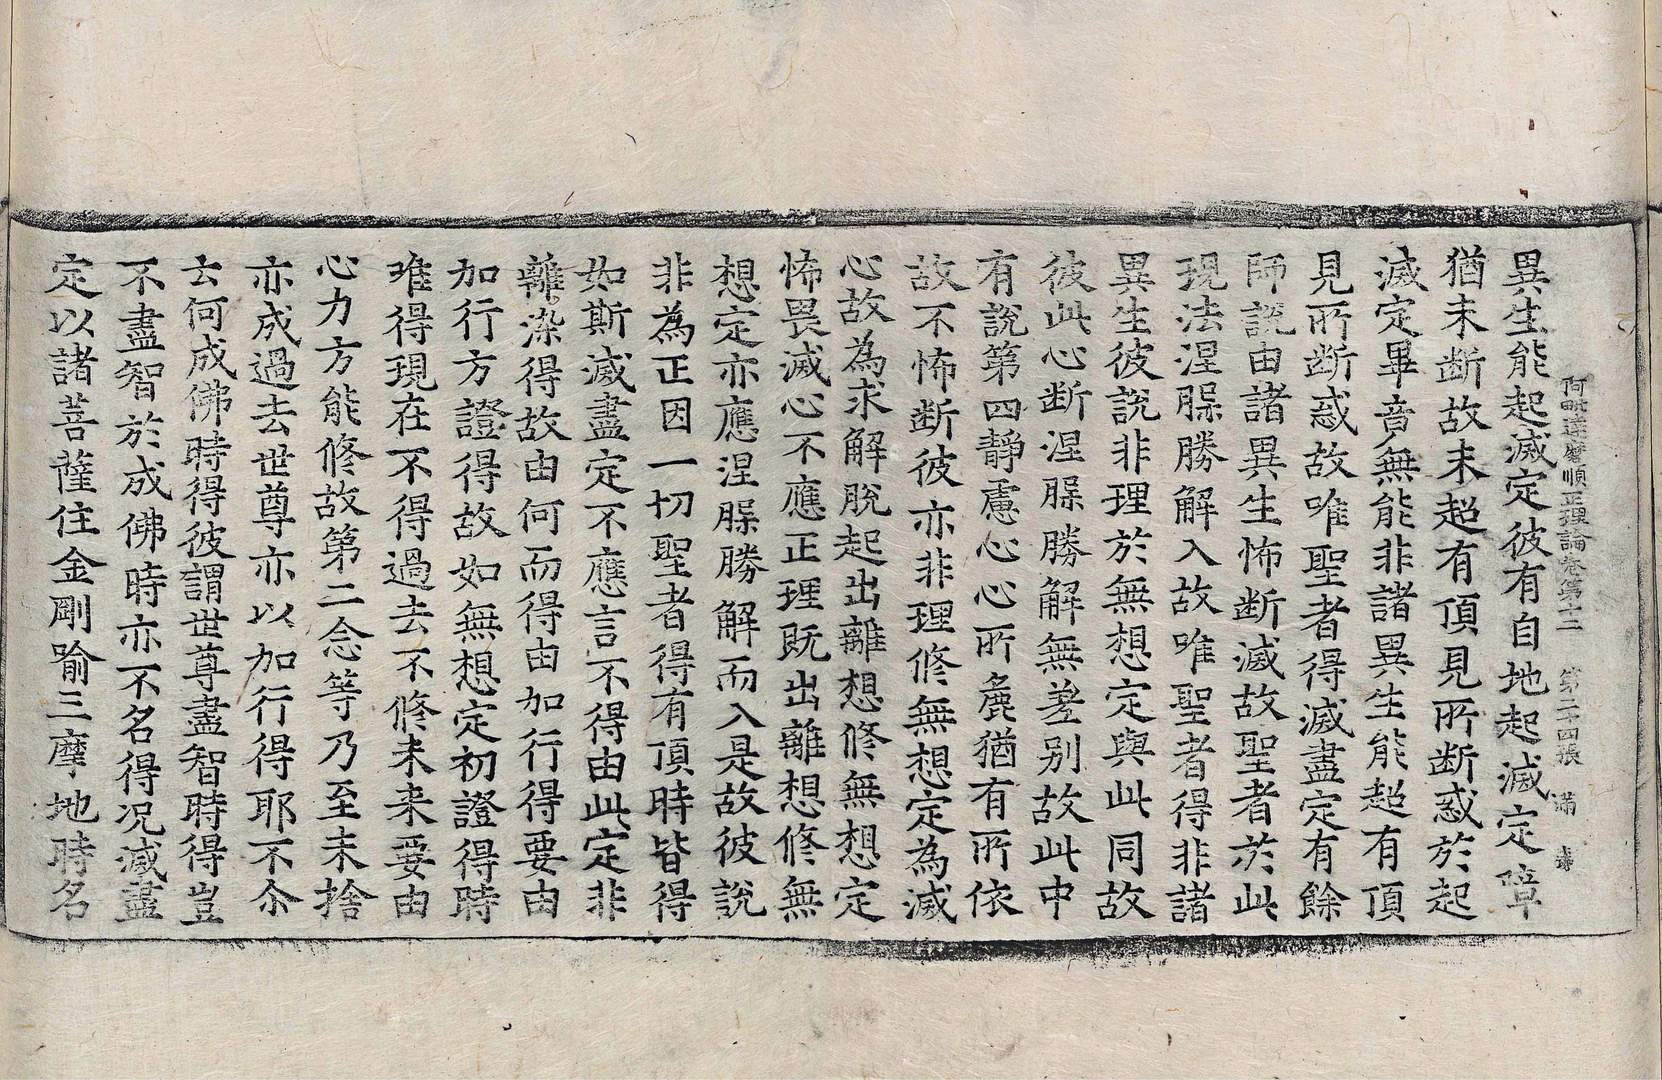 阿毗達磨順正理論卷第十二 第二十四張 滿
異生能起滅定彼有自地起滅定障
猶未斷故未超有頂見所斷惑於起
滅定畢竟無能非諸異生能超有頂
見所斷惑故唯聖者得滅盡定有餘
師說由諸異生怖斷滅故聖者於此
現法涅槃勝解入故唯聖者得非諸
異生彼說非理於無想定與此同故
彼此心斷涅槃勝解無差別故此中
有說第四靜慮心心所麁猶有所依
故不怖斷彼亦非理修無想定為滅
心故為求解脫起出離想修無想定
怖畏滅心不應正理既出離想修無
想定亦應涅槃勝解而入是故彼說
非為正因一切聖者得有頂時皆得
如斯滅盡定不應言不得由此定非
離染得故由何而得由加行得要由
加行方證得故如無想定初證得時
唯得現在不得過去不修未来要由
心力方能修故第二念等乃至未捨
亦成過去世尊亦以加行得耶不尒
云何成佛時得彼謂世尊盡智時得豈
不盡智於成佛時亦不名得况滅盡
定以諸菩薩住金剛喻三摩地時名